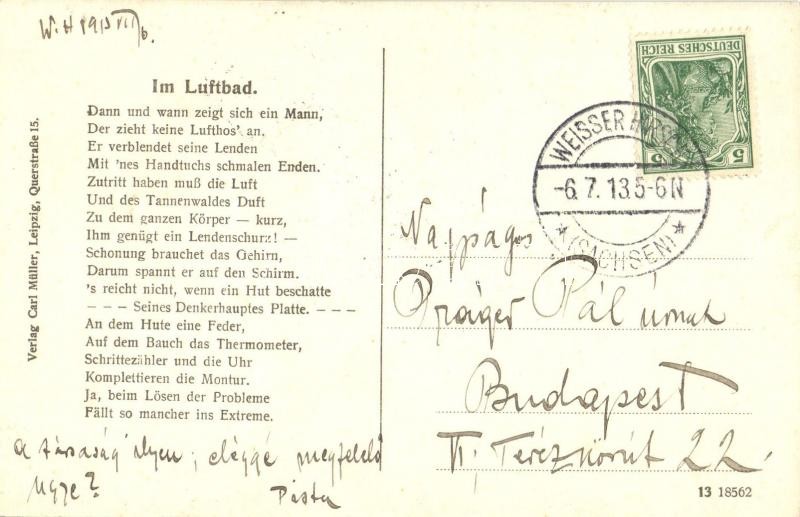 W.H 1913 VII/6.
Im Luftbad.
Dann und wann zeigt sich ein Mann,
Der zieht keine Lufthos' an.
Er verblendet seine Lenden
Mit 'nes Handtuchs schmalen Enden.
Zutritt haben muß die Luft
Und des Tannenwaldes Duft
Zu dem ganzen Körper — kurz,
Ihm genügt ein Lendenschurz! —
Schonung brauchet das Gehirn,
Darum spannt er auf den Schirm.
's reicht nicht, wenn ein Hut beschatte
— — — Seines Denkerhauptes Platte. — — —
An dem Hute eine Feder,
Auf dem Bauch das Thermometer,
Schrittezähler und die Uhr
Komplettieren die Montur.
Ja, beim Lösen der Probleme
Fällt so mancher ins Extreme.
a társaság ilyen, eléggé megfelelő
ugye?
Pista
Verlag Carl Müller, Leipzig, Querstraße 15.
DEUTSCHES REICH
5 5
WEISSER HIRSCH
-6.7.13.5-6N
* (SACHSEN) *
Nagyságos
Práger Pál úrnak
Budapest
VI. Terézkörút 22.
13 18562